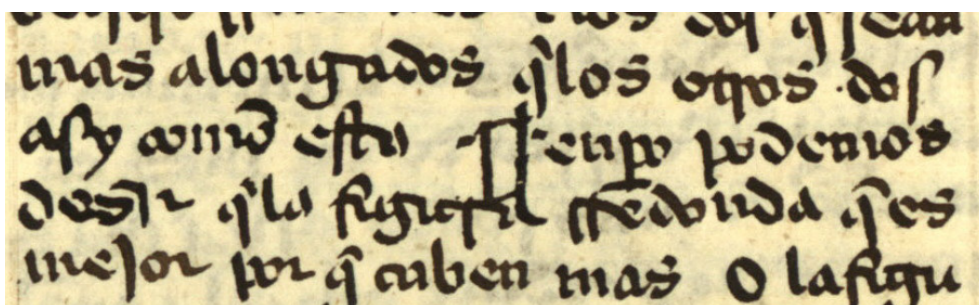 los dos q̃ sean
mas alongados q̃ los otros dos
asy com̃o esta ¶ Pero podemos
desir q̃ la figura rredonda q̃ es
mejor por q̃ caben mas O la figu